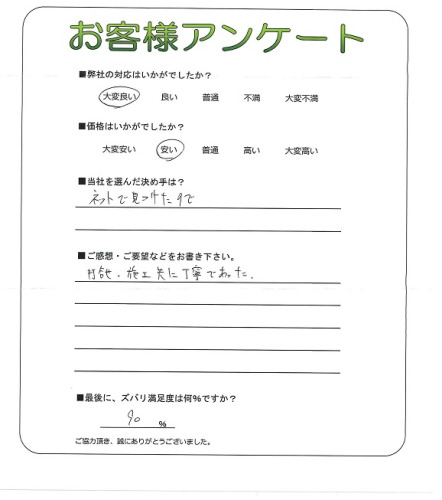 お客様アンケート
■弊社の対応はいかがでしたか?
大変良い 良い 普通 不満 大変不満
■価格はいかがでしたか?
大変安い 安い 普通 高い 大変高い
■当社を選んだ決め手は?
ネットで見つけたので
■ご感想・ご要望などをお書き下さい。
打合せ、施工共に丁寧であった。
■最後に、ズバリ満足度は何%ですか?
90 %
ご協力頂き、誠にありがとうございました。